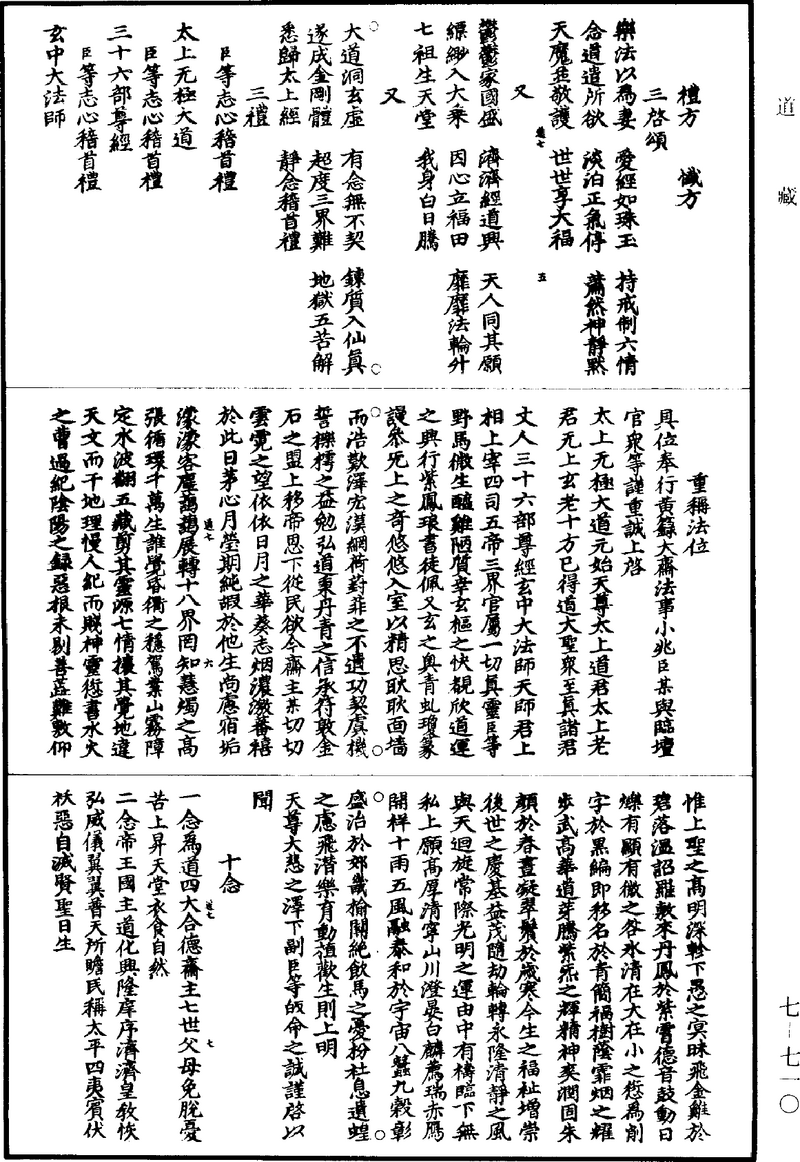 道藏
禮方 懺方
三啓頌
樂法以為妻 愛經如珠玉 持戒制六情
念道遣所欲 淡泊正氣停 蕭然神靜默
天魔並敬護 世世享大福
又
鬱鬱家國盛 濟濟經道興 天人同其願
縹緲入大乘 因心立福田 靡靡法輪升
七祖生天堂 我身白日騰
又
大道洞玄虛 有念無不契 鍊質入仙真
遂成金剛體 超度三界難 地獄五苦解
悉歸太上經 靜念稽首禮
三禮
臣等志心稽首禮
太上无極大道
臣等志心稽首禮
三十六部尊經
臣等志心稽首禮
玄中大法師
重稱法位
具位奉行黃籙大齋法事小兆臣某與臨壇
官衆等謹重誠上啓
太上无極大道元始天尊太上道君太上老
君无上玄老十方已得道大聖衆至真諸君
丈人三十六部尊經玄中大法師天師君上
相上宰四司五帝三界官屬一切真靈臣等
野馬微生醯雞陋質幸玄樞之快覩欣道運
之興行紫鳳琅書徒佩又玄之奧青虬瓊篆
謾參无上之奇悠悠入室以精思耿耿面墻
而浩歎澤宏漠網荷葑菲之不遺功契虞機
誓櫟樗之益勉弘道東丹青之信承符敦金
石之盟上移帝恩下從民欲今齋主某切切
雲霓之望依依日月之華葵志烟濃激蕃禧
於此日茅心月瑩期純嘏於他生尚慮宿垢
濛濛客塵藹藹展轉十八界罔知慧燭之高
張循環千萬生誰覺昏衢之穩駕業山霧障
定水波翻五藏剪其靈源七情攘其覺地違
天文而干地理慢人紀而賤神靈愆書水火
之曹過紀陰陽之錄惡根未剔善蕋難敷仰
惟上聖之高明深軫下愚之冥昧飛金雞於
碧落溫詔羅敷來丹鳳於紫霄德音鼓動日
爍有顯有微之咎氷清在大在小之愆為削
字於黑編即移名於青簡福樹蔭霏烟之耀
步武高華道芽騰紫炁之輝精神爽潤回朱
顏於春晝凝翠鬢於歲寒今生之福祉增崇
後世之慶基益茂隨劫輪轉永隆清靜之風
與天迴旋常際光明之運由中有禱臨下無
私上願高厚清寧山川澄晏白麟薦瑞赤鴈
開祥十雨五風融泰和於宇宙八蠶九穀彰
盛治於郊畿榆關絕飲馬之憂枌社息遺蝗
之慮飛潛樂育動植歡生則上明
天尊大悲之澤下副臣等皈命之誠謹啓以
聞
十念
一念為道四大合德齋主七世父母免脫憂
苦上昇天堂衣食自然
二念帝王國主道化興隆庠序濟濟皇教恢
弘威儀翼翼普天所瞻民稱太平四夷賓伏
袄惡自滅賢聖日生
道七 五
道七 六
道七 七
七—七一〇